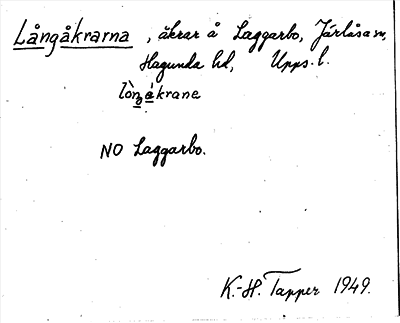 Långåkrarna, åkrar å Laggarbo, Järlåsa sn,
Hagunda hd, Upps. l.
lòŋåkrane
NO Laggarbo.
K.-H. Tapper 1949.